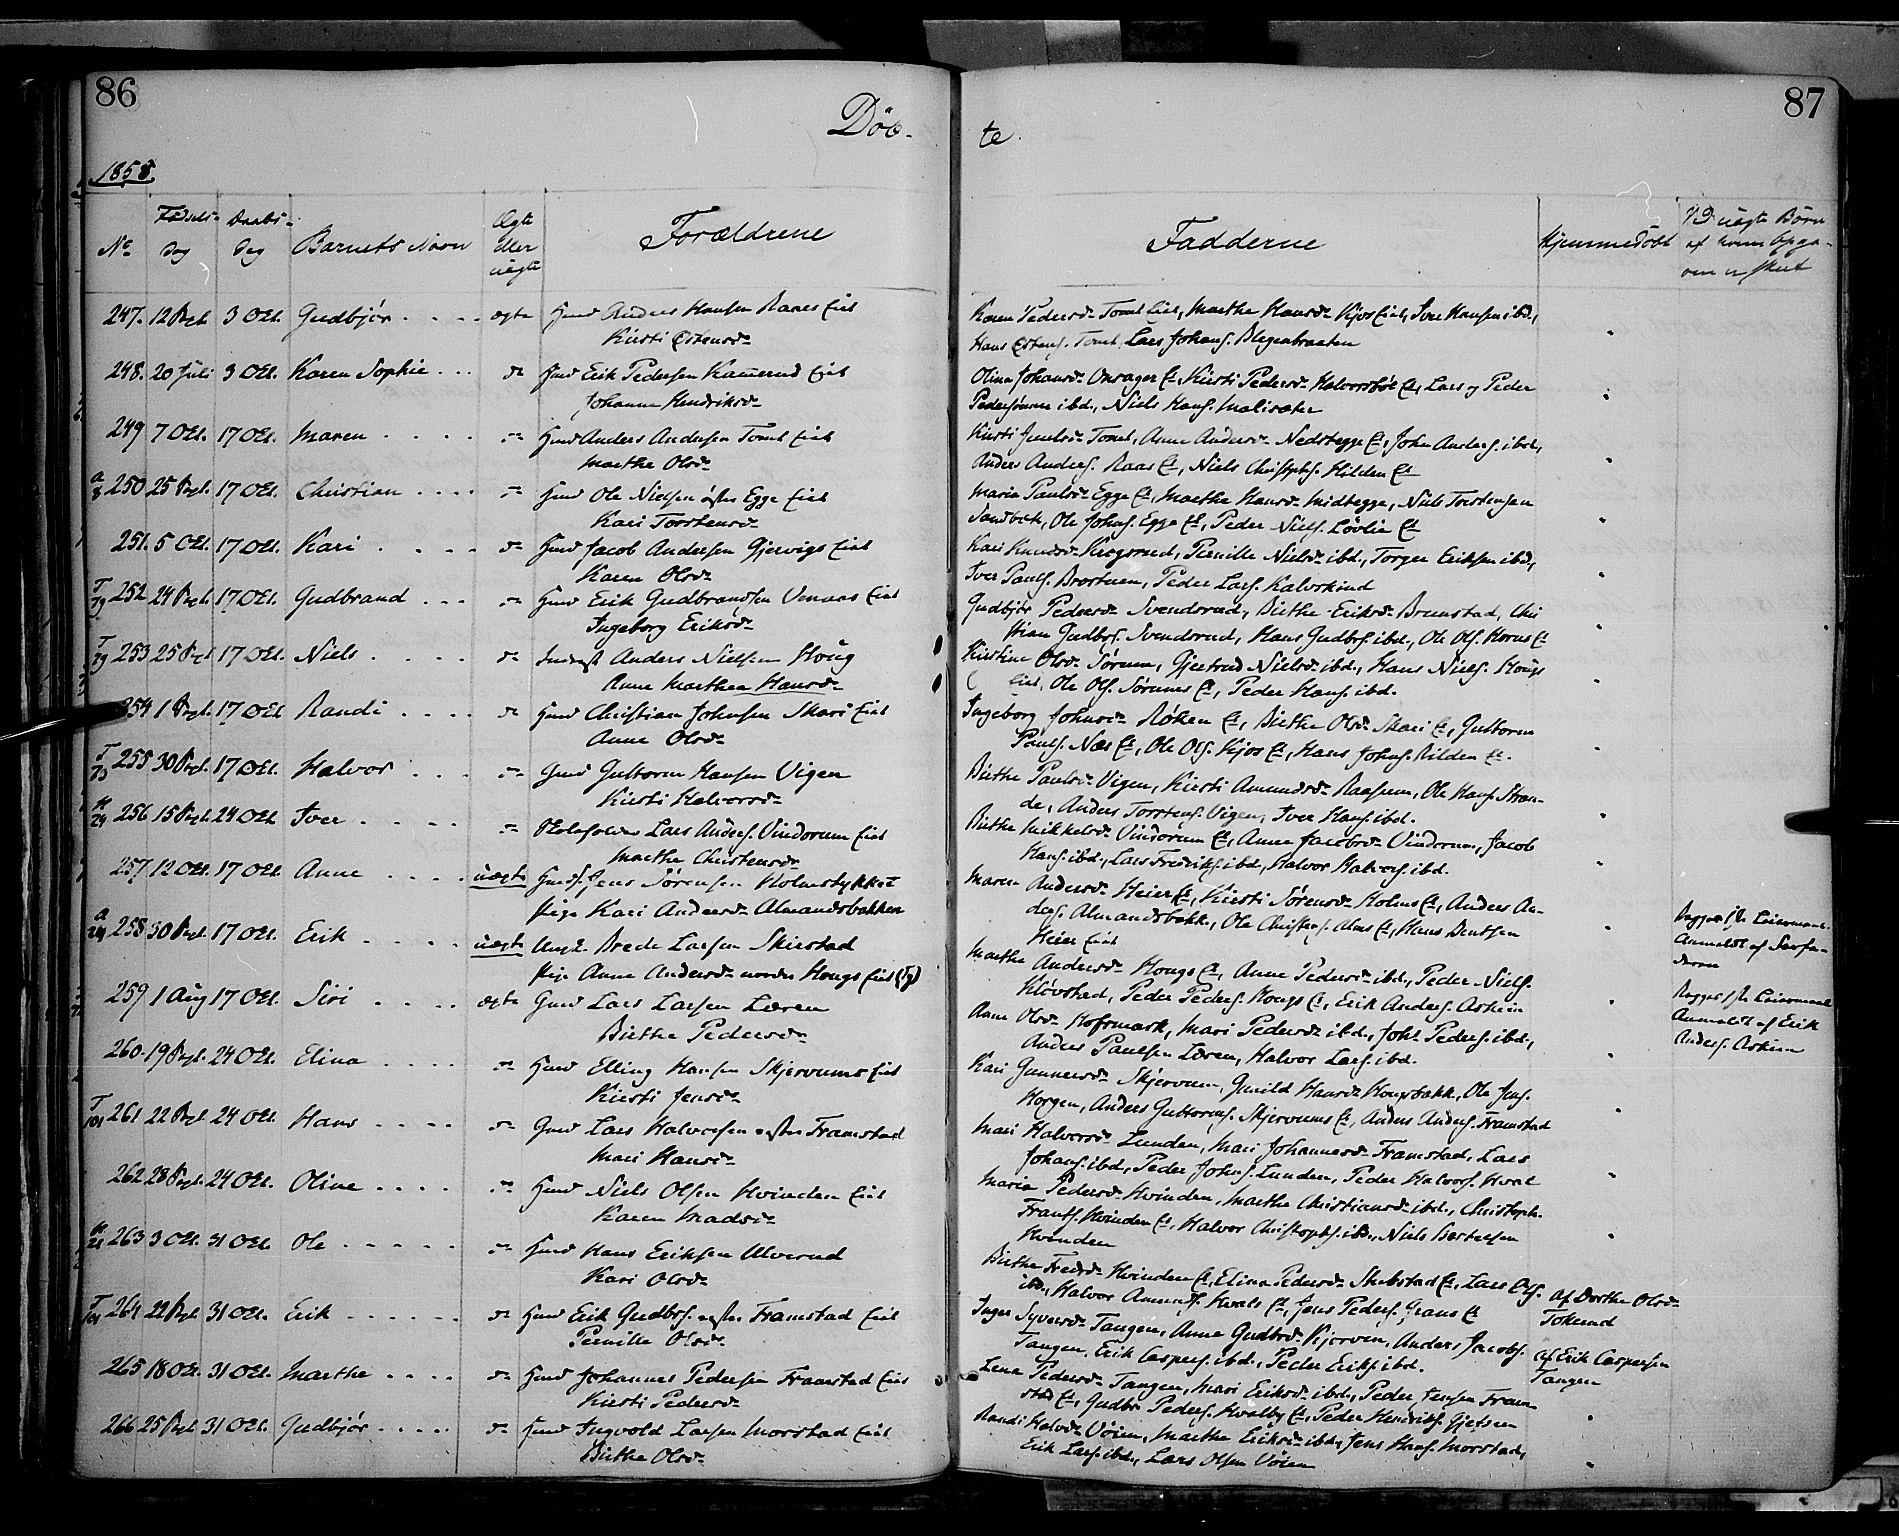 86
Døb-
te
87
1858.
No
Fødsels-
Dag
Daabs-
Dag
Barnets Navn
Ægte
eller
uægte
Forældrene
Fadderne
Hjemmedøbt
Ved uægte Børn
247. 12 Sept. 3 Oct. Gudbjør ægte Huusmd Anders Hansen Raaes Eiet
Kirsti Østensd.
Karen Pedersd. Tomt Eiet, Marthe Hansd. Kjos Eiet, Iver Hansen ibd.,
Hans Østens. Tomt, Lars Johans. Blegenbraaten
248. 20 Juli 3 Oct. Karen Sophie Erik Pedersen Kamerud Eiet
Johanne Hendriksd.
Olina Johansd. Onsager Et., Kirsti Pedersd. Halvorsbøt Et., Lars og Peder
Pedersønner ibd., Niels Hans. Malisæter
249 7 Oct. 17 Oct. Maren Anders Andersen Tomt Eiet
Marthe Olsd.
Kirsti Juulsd. Tomt, Anne Andersd. Nedreegge Et., John Anders. ibd.,
Anders Anders. Raas Et., Niels Christophs. Hilden Et.
250 25 Sept. 17 Oct. Christian Ole Nielsen østre Egge Eiet
Kari Torstensd.
Maria Paulsd. Egge Et., Marthe Hansd. Midtegge, Niels Torstensen
Sandbæk, Ole Johns. Egge Et., Peder Niels. Løvlie Et.
251. 5 Oct. 17 Oct. Kari Jacob Andersen Gjervigs Eiet
Karen Olsd.
Kari Knudsd. Kregsrud, Pernille Nielsd. ibd., Torger Eriksen ibd.,
Iver Pauls. Brostuen, Peder Lars. Kalvskind
252 24 Sept. 17 Oct. Gudbrand Erik Gudbrandsen Venaas Eiet
Ingeborg Eriksd.
Gudbjør Pedersd. Svendsrud, Birthe Eriksd. Brunstad, Chri
stian Gudbrs. Svendsrud, Hans Gudbrs. ibd., Ole Ols. Horns Et.
253 25 Sept. 17 Oct. Niels Anders Nielsen Houg
Anne Marthea Hansd.
Kirstine Olsd. Sørum, Gjertrud Nielsd. ibd., Hans Niels. Hougs
Eiet, Ole Ols. Sørums Et., Peder Hans. ibd.
254 1 Sept. 17 Oct. Randi Christian Johnsen Skari Eiet
Anne Olsd.
Ingeborg Johnsd. Røken Et., Birthe Olsd. Skari Et., Guttorm
Pauls. Næs Et., Ole Ols. Kjos Et., Hans Johns. Rilden Et.
255 30 Sept. 17 Oct. Halvor Gmd Guttorm Hansen Vigen
Kirsti Halvorsd.
Birthe Paulsd. Vigen, Kirsti Amundsd. Raasum, Ole Hans. Stran-
de, Anders Torstens. Vigen, Iver Hans. ibd.
256 15 Sept. 24 Oct. Iver Lars Anders. Vindorum Eiet
Marthe Christensd.
Birthe Mikkelsd. Vindorum Et., Anne Jacobsd. Vindorum, Jacob
Hans. ibd., Lars Fredriks. ibd., Halvor Halvors. ibd.
257 12 Oct. 17 Oct. Anne uægte Jens Sørensen Holmstykket
Pige Kari Andersd. Almandsbakken
Maren Andersd. Heier Et., Kirsti Sørensd. Holms Et., Anders An-
ders. Almandsbakk., Ole Christens. Alms Et., Hans Bentsen
Heier Eiet
258 30 Sept. 17 Oct. Erik uægte Ungk. Brede Larsen Skiestad
Pige Anne Andersd. nordre Hougs Eiet
Marthe Andersd. Hougs Et., Anne Pedersd. ibd., Peder Niels.
Kløvstad, Peder Peders. Hougs Et., Erik Anders. Askim
Begges 1ste Leiermaal
Begges 1ste Leiermaal
Anmeldt af Erik
Anders. Askim
259 1 Aug 17 Oct. Siri ægte Gmd Lars Larsen Læren
Birthe Pedersd.
Anne Olsd. Hofsmark, Mari Pedersd. ibd., Joh. Peders. ibd.,
Anders Paulsen Læren, Halvor Lars. ibd.
260. 19 Sept. 24 Oct. Elina Elling Hansen Skjervums Eiet
Kirsti Jensd.
Kari Gunnersd. Skjervum, Gunild Hansd. Hougsbakk, Ole Jens.
Horgen, Anders Guttorms. Skjervums Et., Anders Anders. Framstad
261 22 Sept. 24 Oct. Hans Gmd Lars Halvorsen østre Framstad
Mari Hansd.
Mari Halvorsd. Lunden, Mari Johannesd. Framstad, Lars
Johans. ibd., Peder Johns. Lunden, Peder Halvors. Hval
262 28 Sept. 24 Oct. Oline Niels Olsen Hvinden Eiet
Karen Madsd.
Maria Pedersd. Hvinden, Marthe Christiansd. ibd., Christoph.
Frants. Hvinden Et., Halvor Christophs. ibd., Niels Bertelsen
Hvinden
263 3 Oct. 31 Oct. Ole Hans Eriksen Ulverud
Kari Olsd.
Birthe Fredsd. Hvinden Et., Elina Pedersd. Skebstad Et., Lars Ols.
ibd., Halvor Amunds. Hvals Et., Jens Peders. Grans Et.
af Dorthe Olsd.
Tokerud
264 22 Sept. 31 Oct. Erik Erik Gudbrs. østre Framstad Eiet
Pernille Olsd.
Inger Syversd. Tangen, Anne Gudbrsd. Kjørven, Anders Jacobs.
Tangen, Erik Caspers. ibd., Peder Eriks. ibd.
af Erik Caspersen
Tangen
265 18 Oct. 31 Oct. Marthe Johannes Pedersen Framstad Eiet
Kirsti Pedersd.
Lena Pedersd. Tangen, Mari Eriksd. ibd., Peder Jensen Fram-
stad Et., Gudbr. Peders. Hvalby Et., Peder Hendriks. Gjetsen
266 25 Sept. 31 Oct. Gudbjør Ingvold Larsen Morstad Eiet
Birthe Olsd.
Randi Halvsd. Vøien, Marthe Eriksd. ibd., Jens Hans. Morstad,
Erik Lars. ibd., Lars Olsen Vøien